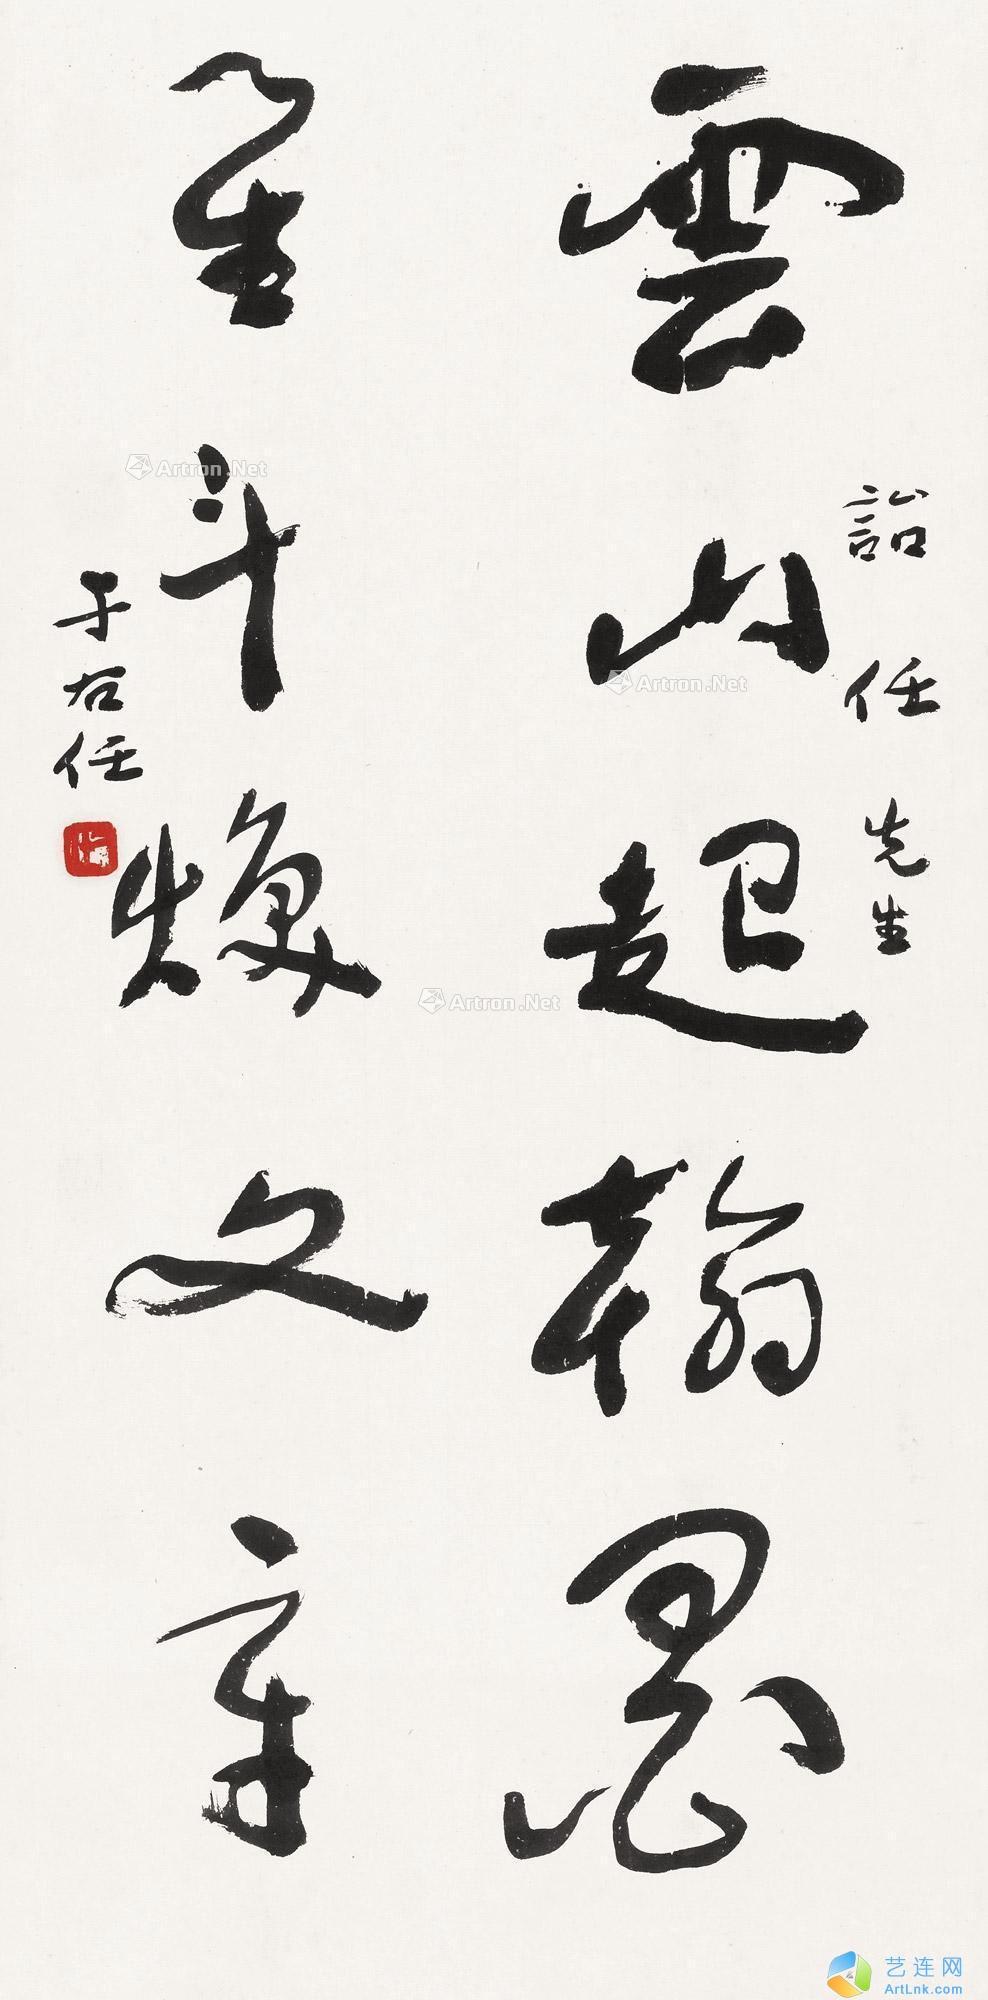 詒任先生
雲山起翰墨
星斗煥文章
于右任
Artron.Net
Artron.Net
Artron.Net
艺连网
ArtLnk.com